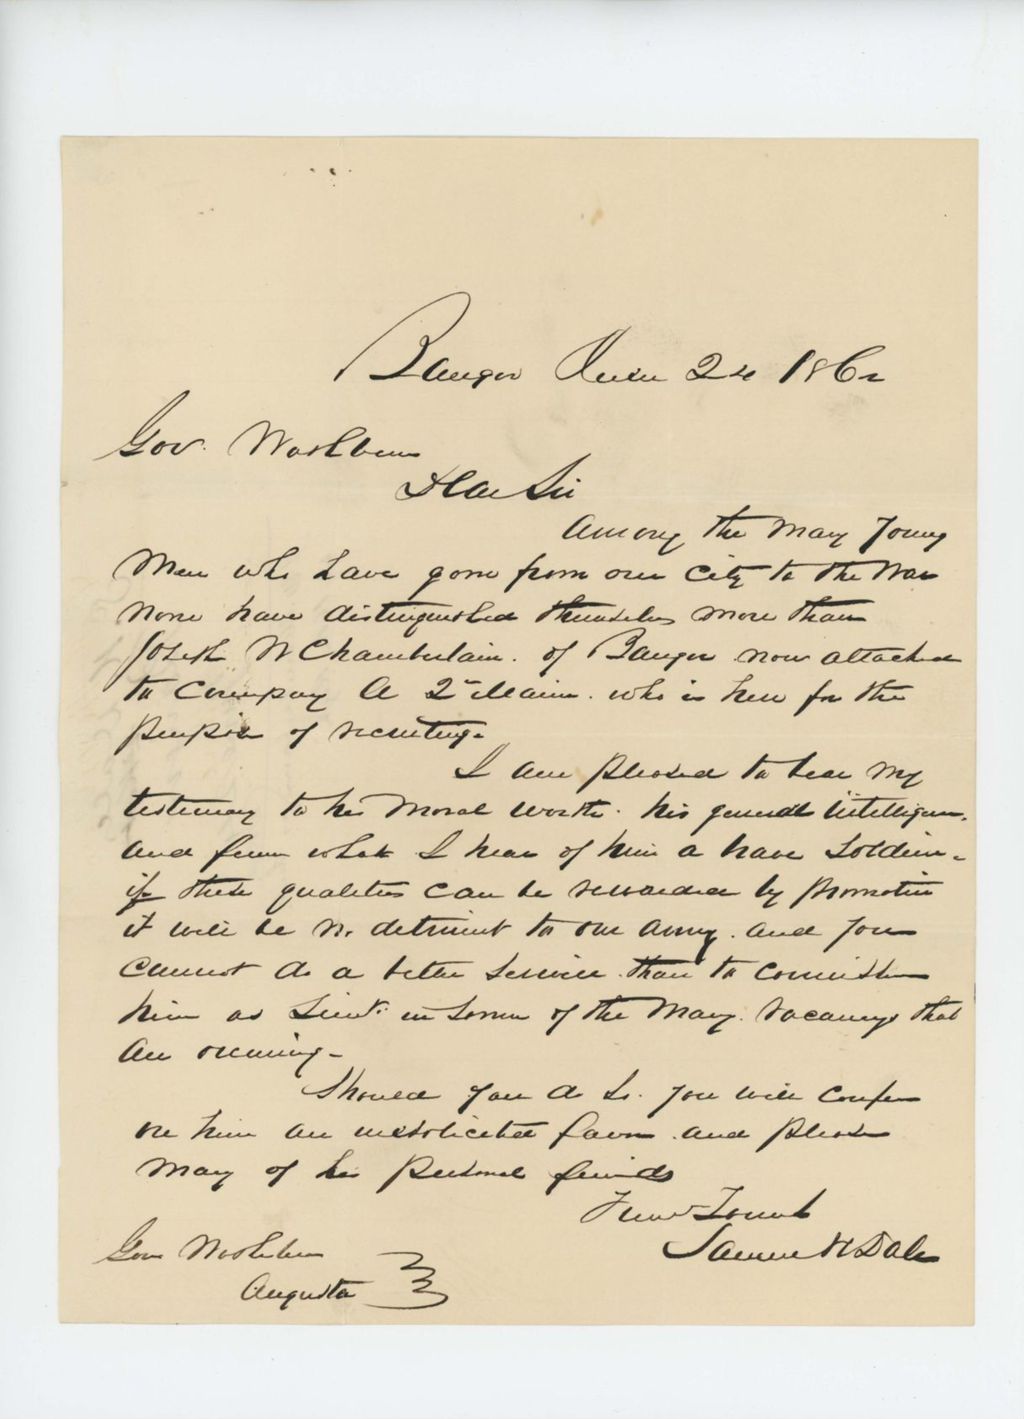 Bangor June 24 1862
Gov. Washburn
Dear Sir
Among the many young
Men who have gone from our City to the War
None have distinguished themselves more than
Joseph W Chamberlain. of Bangor now attached
to Company A 2d Maine. who is here for the
purpose of recruiting.
I am pleased to bear my
testimony to his Moral worth. his general intelligence.
And from what I hear of him a brave Soldier.
if these qualities can be rewarded by promotion
it will be no detriment to our army. and you
cannot do a better service than to commission
him as Lieut. in some of the many vacancys that
are occuring.
Should you do so. you will confer
on him an unsolicited favor and please
many of his personal friends
Samuel H Dale
Gov Washburn
Augusta